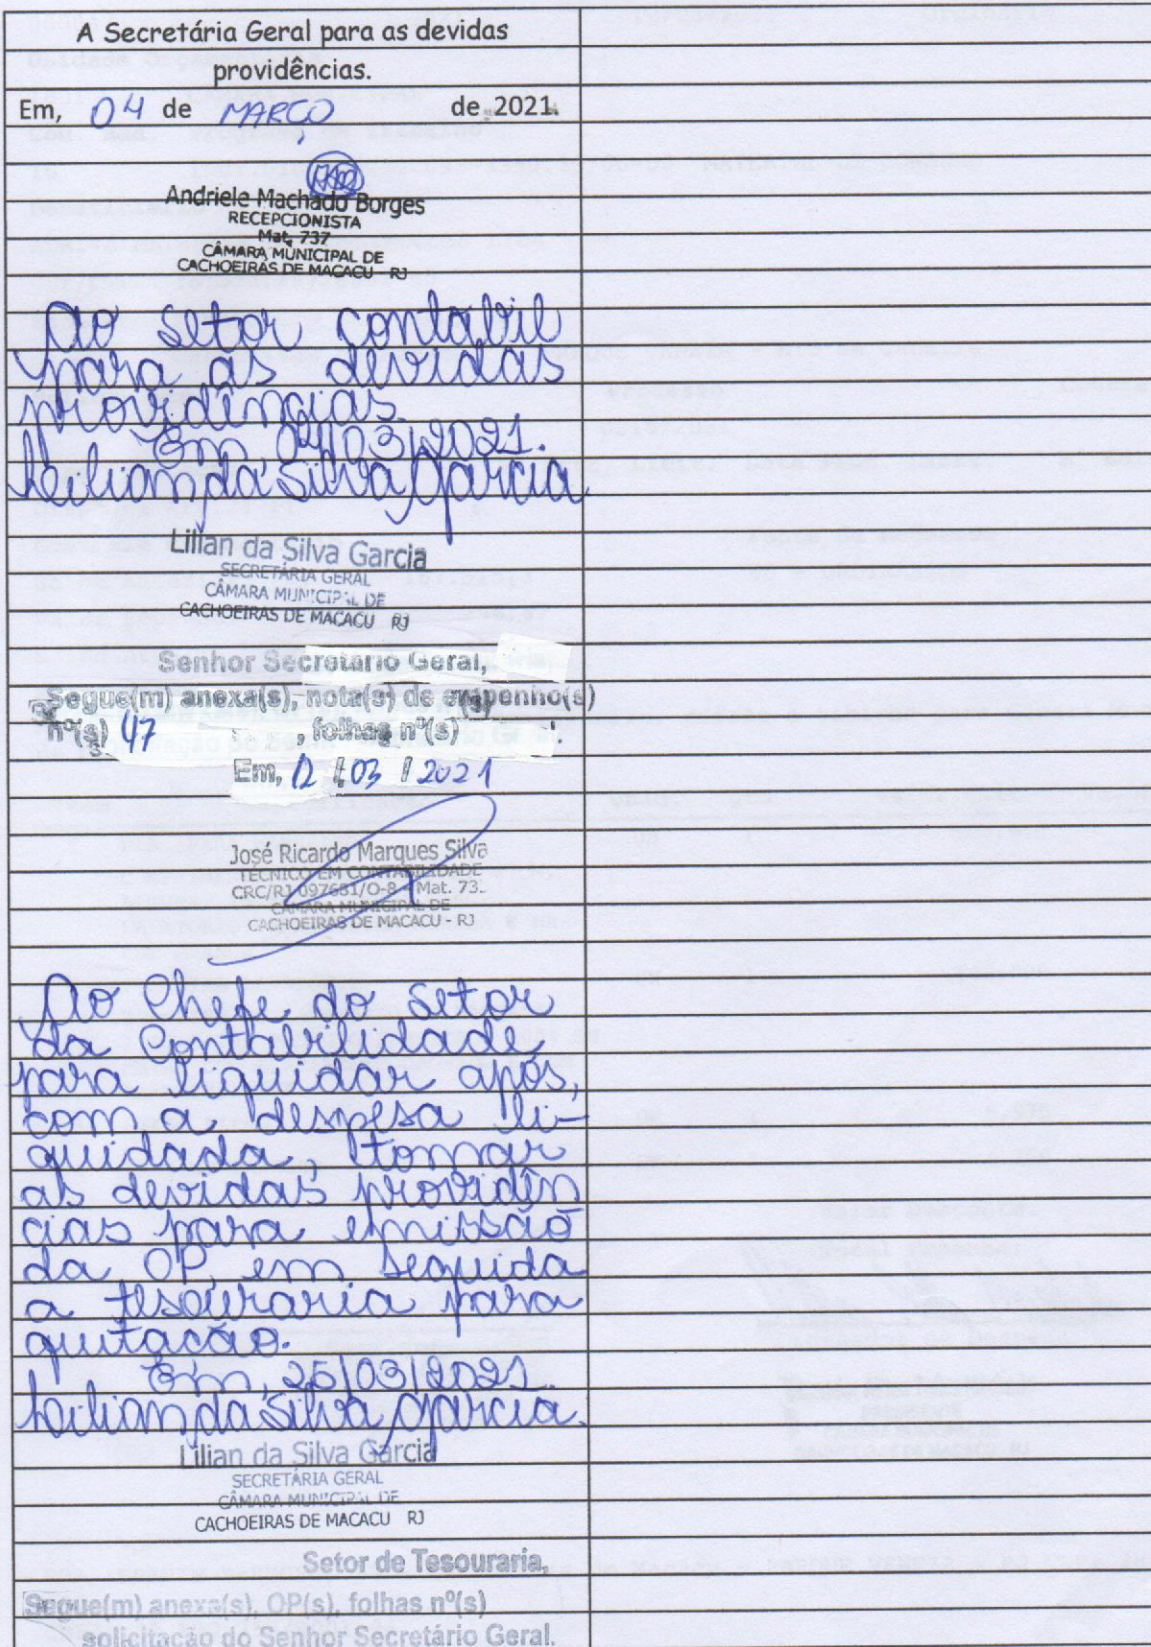 A Secretária Geral para as devidas
providências.
Em, 04 de MARÇO de 2021.
Andriele Machado Borges
RECEPCIONISTA
Mat. 737
CÂMARA MUNICIPAL DE
CACHOEIRAS DE MACACU - RJ
Ao setor contabil
para as devidas
providências.
Em, 04/03/2021.
Lilian da Silva Garcia
Lilian da Silva Garcia
SECRETÁRIA GERAL
CÂMARA MUNICIPAL DE
CACHOEIRAS DE MACACU RJ
Senhor Secretário Geral,
Segue(m) anexa(s), nota(s) de empenho(s)
nº(s) 47 , folhas nº(s)
Em, 12 / 03 / 2021
José Ricardo Marques Silva
TÉCNICO EM CONTABILIDADE
CRC/RJ 097681/O-8 - Mat. 73
CÂMARA MUNICIPAL DE
CACHOEIRAS DE MACACU - RJ
Ao Chefe do setor
da Contabilidade
para liquidar após,
com a despesa li-
quidada, tomar
as devidas providên
cias para emissão
da OP, em seguida
a tesouraria para
quitação.
Em, 25/03/2021.
Lilian da Silva Garcia.
Lilian da Silva Garcia
SECRETÁRIA GERAL
CÂMARA MUNICIPAL DE
CACHOEIRAS DE MACACU RJ
Setor de Tesouraria,
Segue(m) anexa(s), OP(s), folhas nº(s)
solicitação do Senhor Secretário Geral.